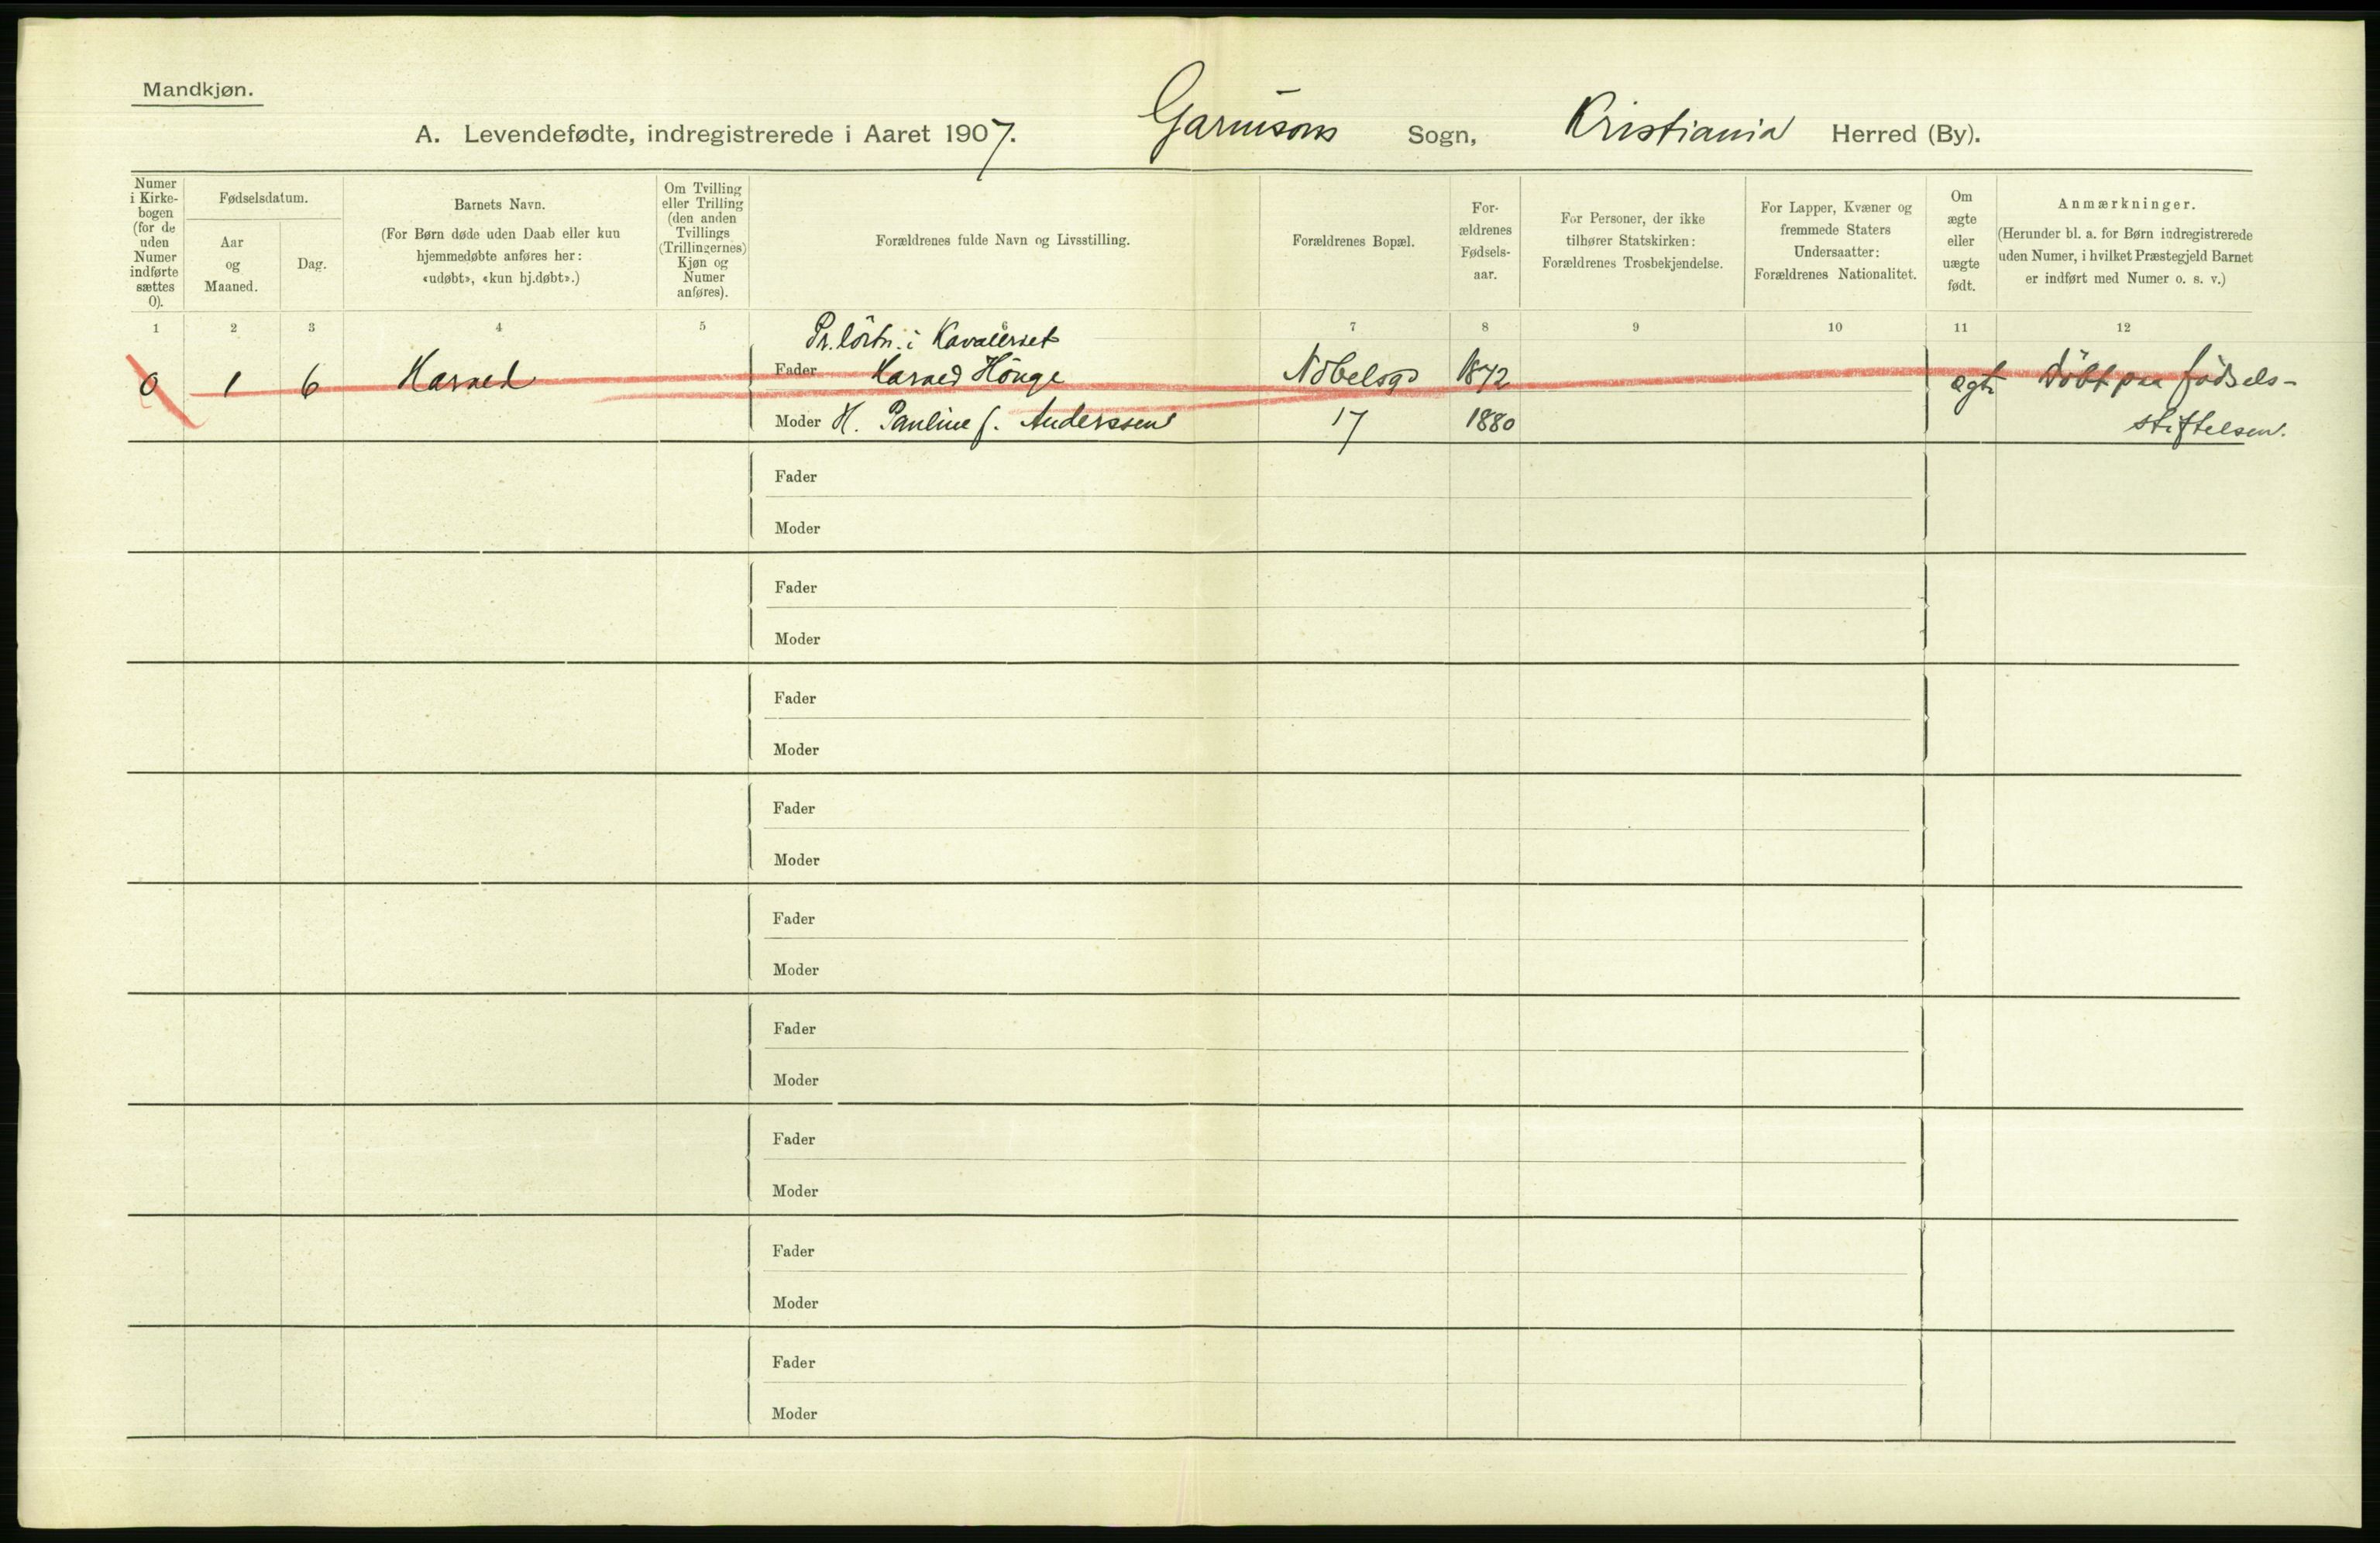 Mandkjøn.
A. Levendefødte, indregistrerede i Aaret 1907. Garnisons Sogn, Kristiania Herred (By).
Numer i Kirke-bogen (for de uden Numer indførte sættes 0).
Fødselsdatum.
Aar og Maaned.
Dag.
Barnets Navn.
(For Børn døde uden Daab eller kun
hjemmedøbte anføres her:
«udøbt», «kun hj.døbt».)
Om Tvilling
eller Trilling
(den anden
Tvillings
(Trillingernes)
Kjøn og
Numer
anføres).
Forældrenes fulde Navn og Livsstilling.
Forældrenes Bopæl.
For-
ældrenes
Fødsels-
aar.
For Personer, der ikke
tilhører Statskirken:
Forældrenes Trosbekjendelse.
For Lapper, Kvæner og
fremmede Staters
Undersaatter:
Forældrenes Nationalitet.
Om
ægte
eller
uægte
født.
Anmærkninger.
(Herunder bl. a. for Børn indregistrerede
uden Numer, i hvilket Præstegjeld Barnet
er indført med Numer o. s. v.)
1 2 3 4 5 7 8 9 10 11 12
Pr.löitn. i Kavaleriet
0 1 6 Harald Fader Harald Hönge Nobelsgd 1872 ægte Döbt paa fødsels-
Moder H. Pauline f. Anderssen 17 1880 stiftelsen.
Fader
Moder
Fader
Moder
Fader
Moder
Fader
Moder
Fader
Moder
Fader
Moder
Fader
Moder
Fader
Moder
Fader
Moder